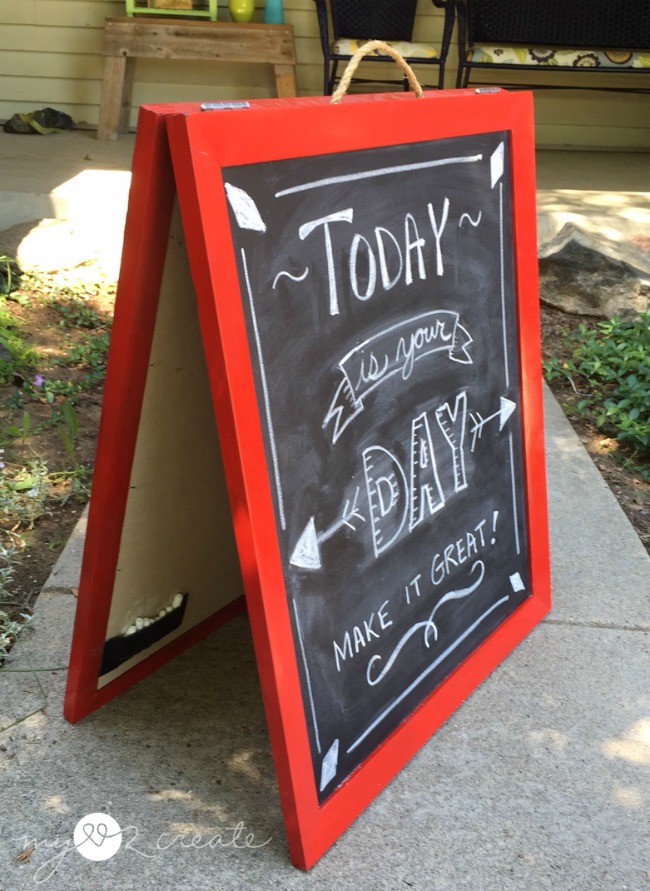 ~ TODAY ~
is your
DAY
MAKE IT GREAT!
my 2 create